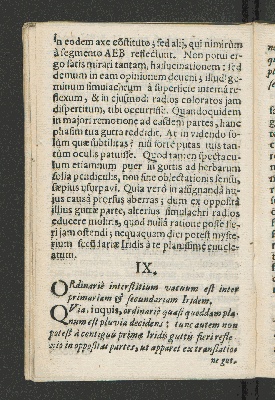 in eodem axe cõstituto; sed alij, qui nimirùm
à segmento AEB reflectunt. Non potui er-
go satis mirari tantam, hallucinationem; sed
demum in eam opinionem deueni, illud ge-
minum simulachrum à superficie interna re-
flexum, & in eiusmodi radios coloratos jam
dispertitum, tibi occurrisse. Quandoquidem
in majori remotione ad easdem partes, hanc
phasim tua gutta reddidit. At in videndo so-
lùm quæ subtilitas? nisi fortè putas tuis tan-
tùm oculis patuisse. Quod tamen spectacu-
lum etiamnum puer in guttis ad herbarum
folia pendiculis, non sine oblectationis sensu,
sæpius usurpavi. Quia verò in assignandâ hu-
jus causâ prorsus aberras; dum ex oppositâ
illius guttæ parte, alterius simulachri radios
educere moliris, quod nullâ ratione posse fie-
ri jam ostendi; nequaquam dici potest myste-
rium secundariæ Iridis à te planissimè enucle-
atum.
IX.
Ordinariè interstitium vacuum est inter
primariam & secundariam Iridem.
Qvia, inquis, ordinariè quasi quoddam pla-
num est pluvia decidens; tunc autem non
potest à contiguis primæ Iridis guttis fieri refle-
xio in oppositas partes, ut apparet ex translatio-
ne gut.